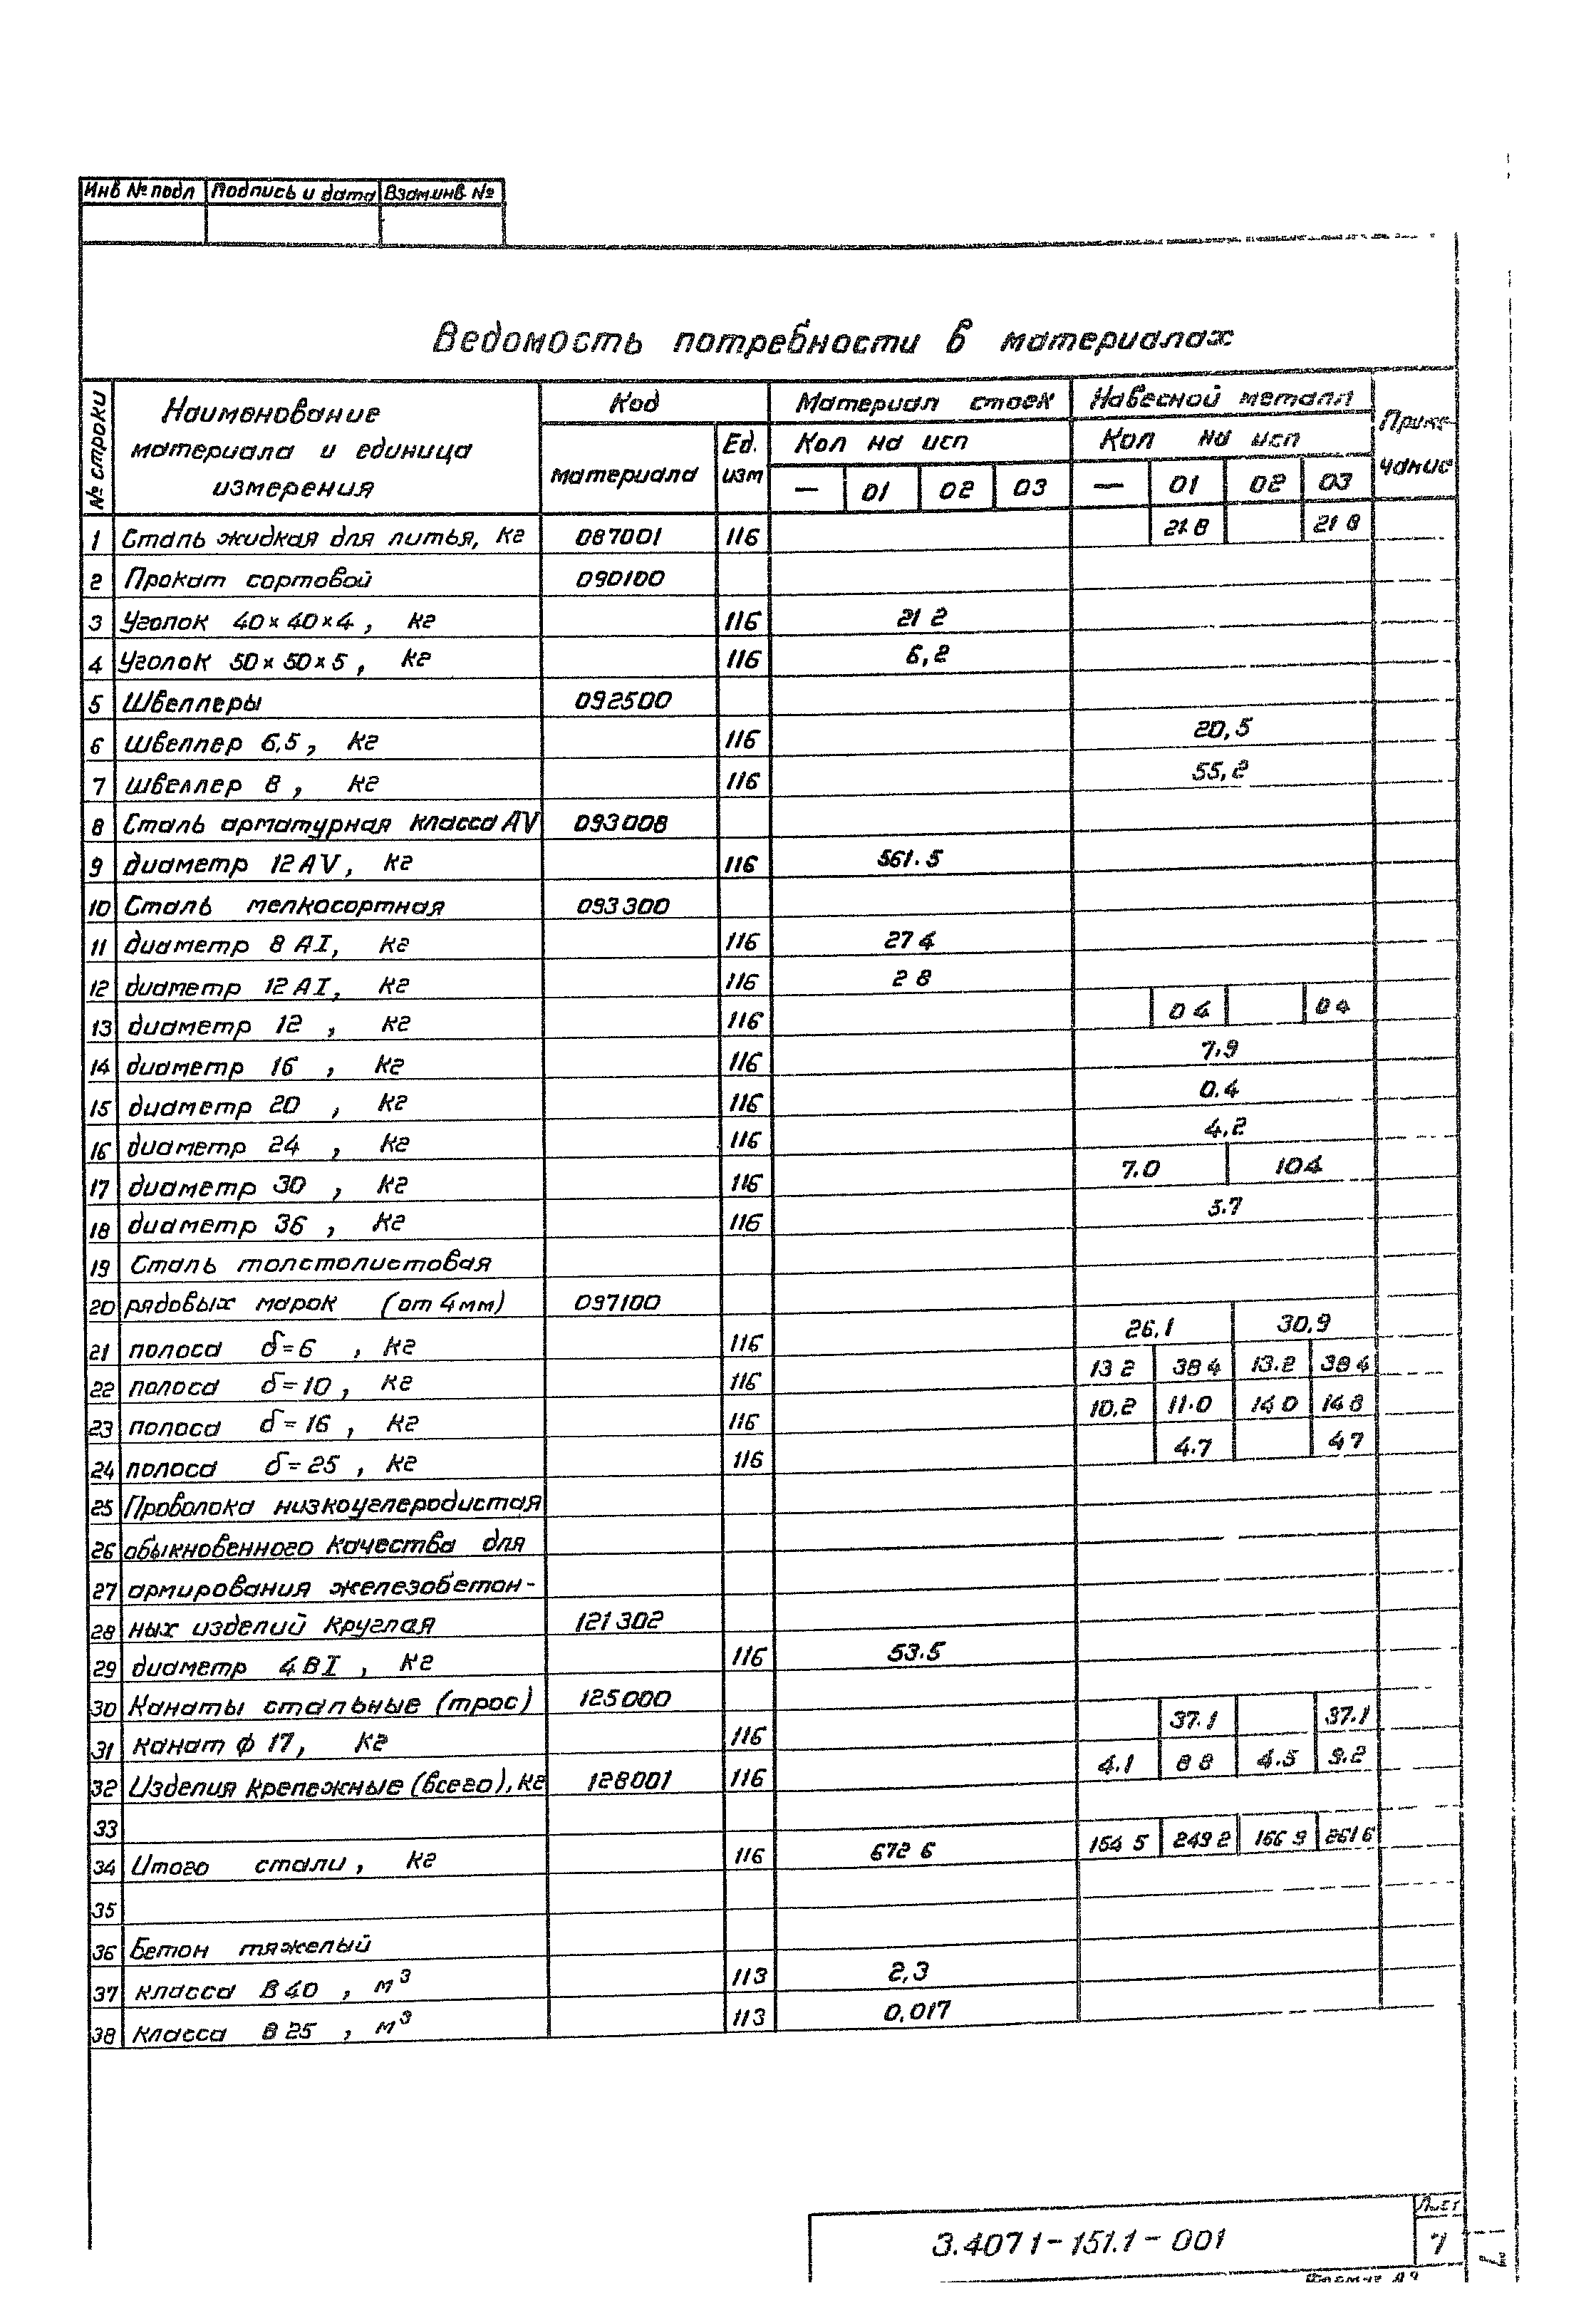 Инв № подл Подпись и дата Взам.инв №
Ведомость потребности в материалах
№ строки Наименование материала и единица измерения Код Материал стоек Навесной металл Приме-
чание
материала Ед. изм Кол на исп Кол на исп
— 01 02 03 — 01 02 03
1 Сталь жидкая для литья, кг 087001 116 21.8 21 8
2 Прокат сортовой 090100
3 Уголок 40×40×4, кг 116 21 2
4 Уголок 50×50×5, кг 116 6,2
5 Швеллеры 092500
6 швеллер 6,5, кг 116 20,5
7 швеллер 8, кг 116 55,2
8 Сталь арматурная класса АV 093008
9 диаметр 12 АV, кг 116 561.5
10 Сталь мелкосортная 093300
11 диаметр 8 АI, кг 116 27 4
12 диаметр 12 АI, кг 116 2 8
13 диаметр 12 , кг 116 0 4 0 4
14 диаметр 16 , кг 116 7.9
15 диаметр 20 , кг 116 0.4
16 диаметр 24 , кг 116 4,2
17 диаметр 30 , кг 116 7.0 10 4
18 диаметр 36 , кг 116 5.7
19 Сталь толстолистовая
20 рядовых марок (от 4 мм) 097100
21 полоса δ=6 , кг 116 26,1 30,9
22 полоса δ=10 , кг 116 13 2 38 4 13.2 38 4
23 полоса δ=16 , кг 116 10.2 11.0 14 0 14 8
24 полоса δ=25 , кг 116 4.7 4 7
25 Проволока низкоуглеродистая
26 обыкновенного качества для
27 армирования железобетон-
28 ных изделий круглая 121302
29 диаметр 4 ВI , кг 116 53.5
30 Канаты стальные (трос) 125000
31 канат ф 17, кг 116 37.1 37.1
32 Изделия крепежные (всего), кг 128001 116 4.1 8 8 4.5 9.2
33
34 Итого стали, кг 116 672 6 154 5 249 2 166 9 261 6
35
36 Бетон тяжелый
37 класса В 40 , м³ 113 2,3
38 класса В 25 , м³ 113 0,017
3.407 1-151.1-001
Лист
7
7